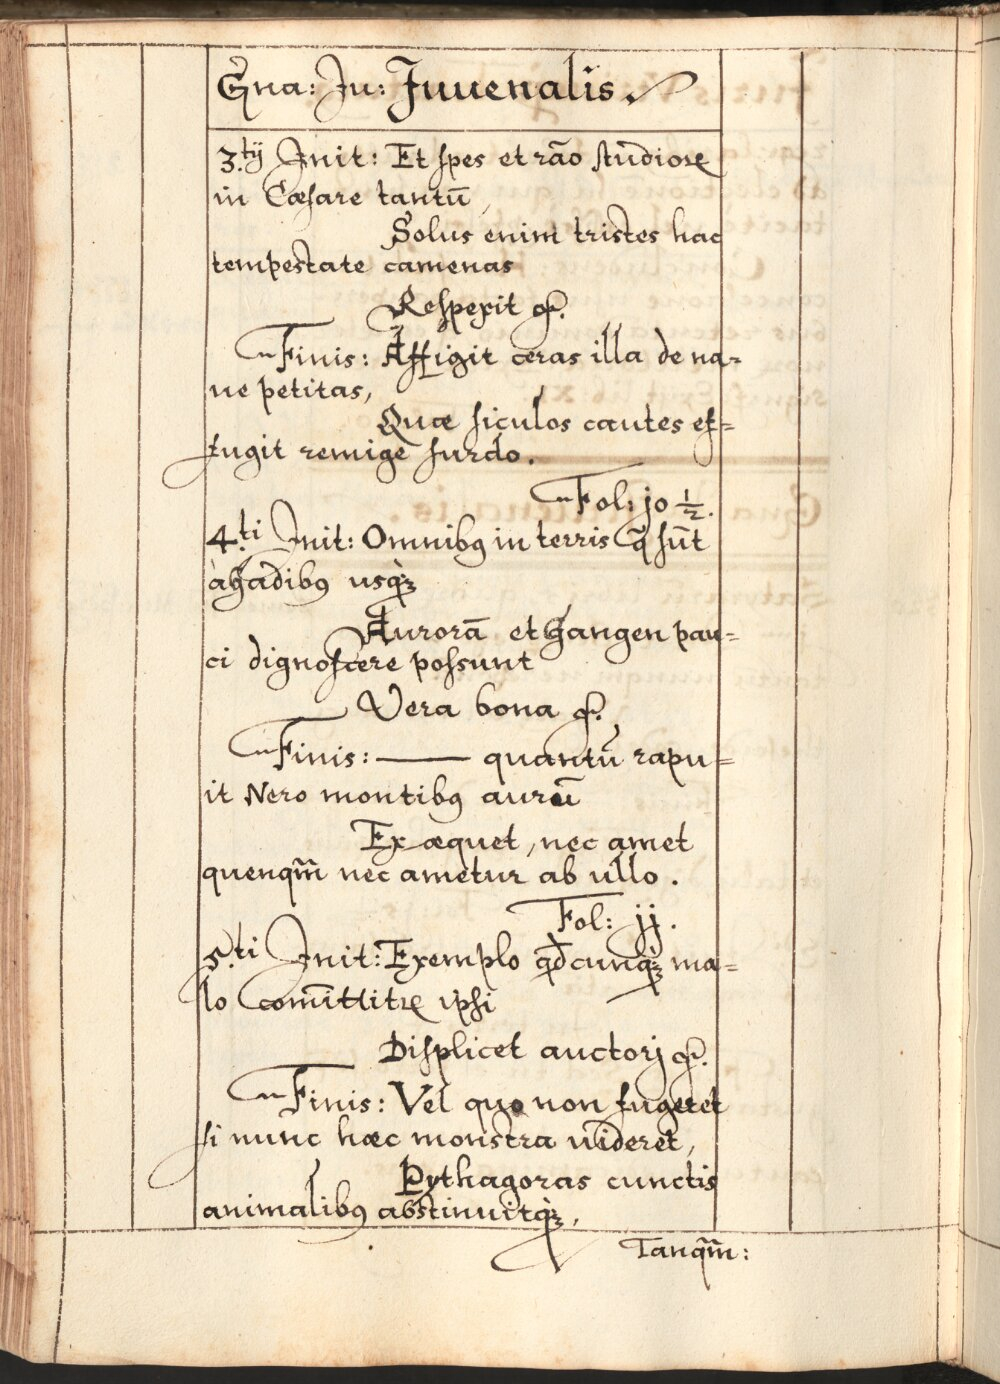 Gna: Ju: Juuenalis.
3.tij Init: Et spes et rão studiorꝝ
in Cæsare tantũ,
Solus enim tristes hac
tempestate camenas
Respexit &.
Finis: Affigit ceras illa de na=
ue petitas,
Quæ siculos cautes ef=
fugit remige surdo.
Fol: jo ½.
4.ti Init: Omnibꝯ in terris q̃ sũt
à gadibꝯ usqꝫ
Aurorã et Gangen pau=
ci dignoscere possunt
Vera bona &.
Finis: —— quantũ rapu=
it Nero montibꝯ aurũ
Ex æquet, nec amet
quenqm̃ nec ametur ab ullo.
Fol: jj.
5.ti Init: Exemplo qđcunqꝫ ma=
lo com̃ittitꝛ ipsi
Displicet auctorj &.
Finis: Vel quo non fugeret
si nunc hæc monstra uideret,
Pythagoras cunctis
animalibꝯ abstinuitqꝫ,
Tanqm̃: